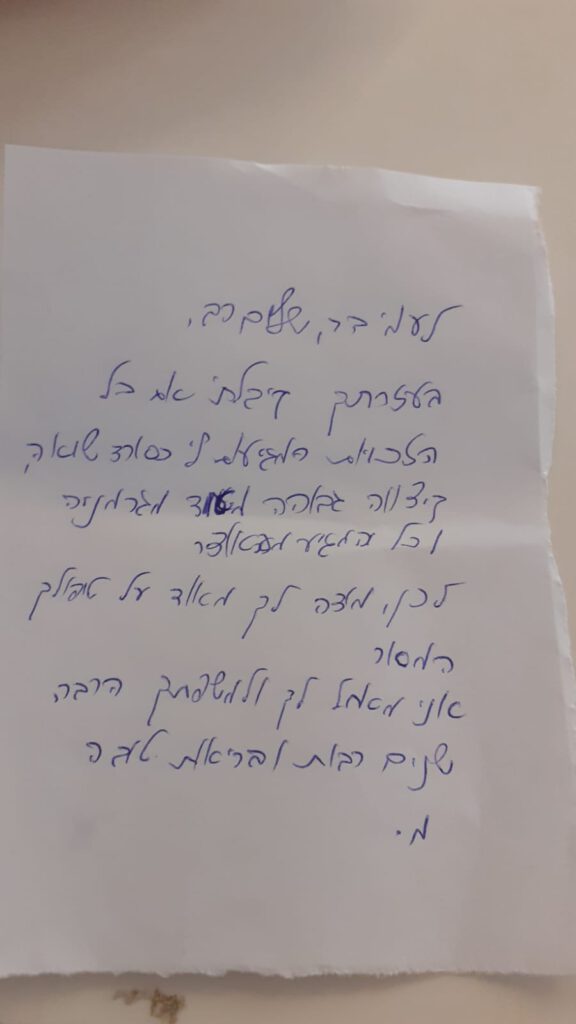 לעמי בר, שלום רב,
בעזרתך קיבלתי את כל
הזכויות המגיעות לי כשורד שואה,
קיצבה גבוהה מאוד מגרמניה
וכל המגיע מהאוצר
לכן, תודה לך מאוד על טיפולך
המסור
אני מאחל לך ולמשפחתך הרבה
שנים רבות ובריאות טובה
מ.